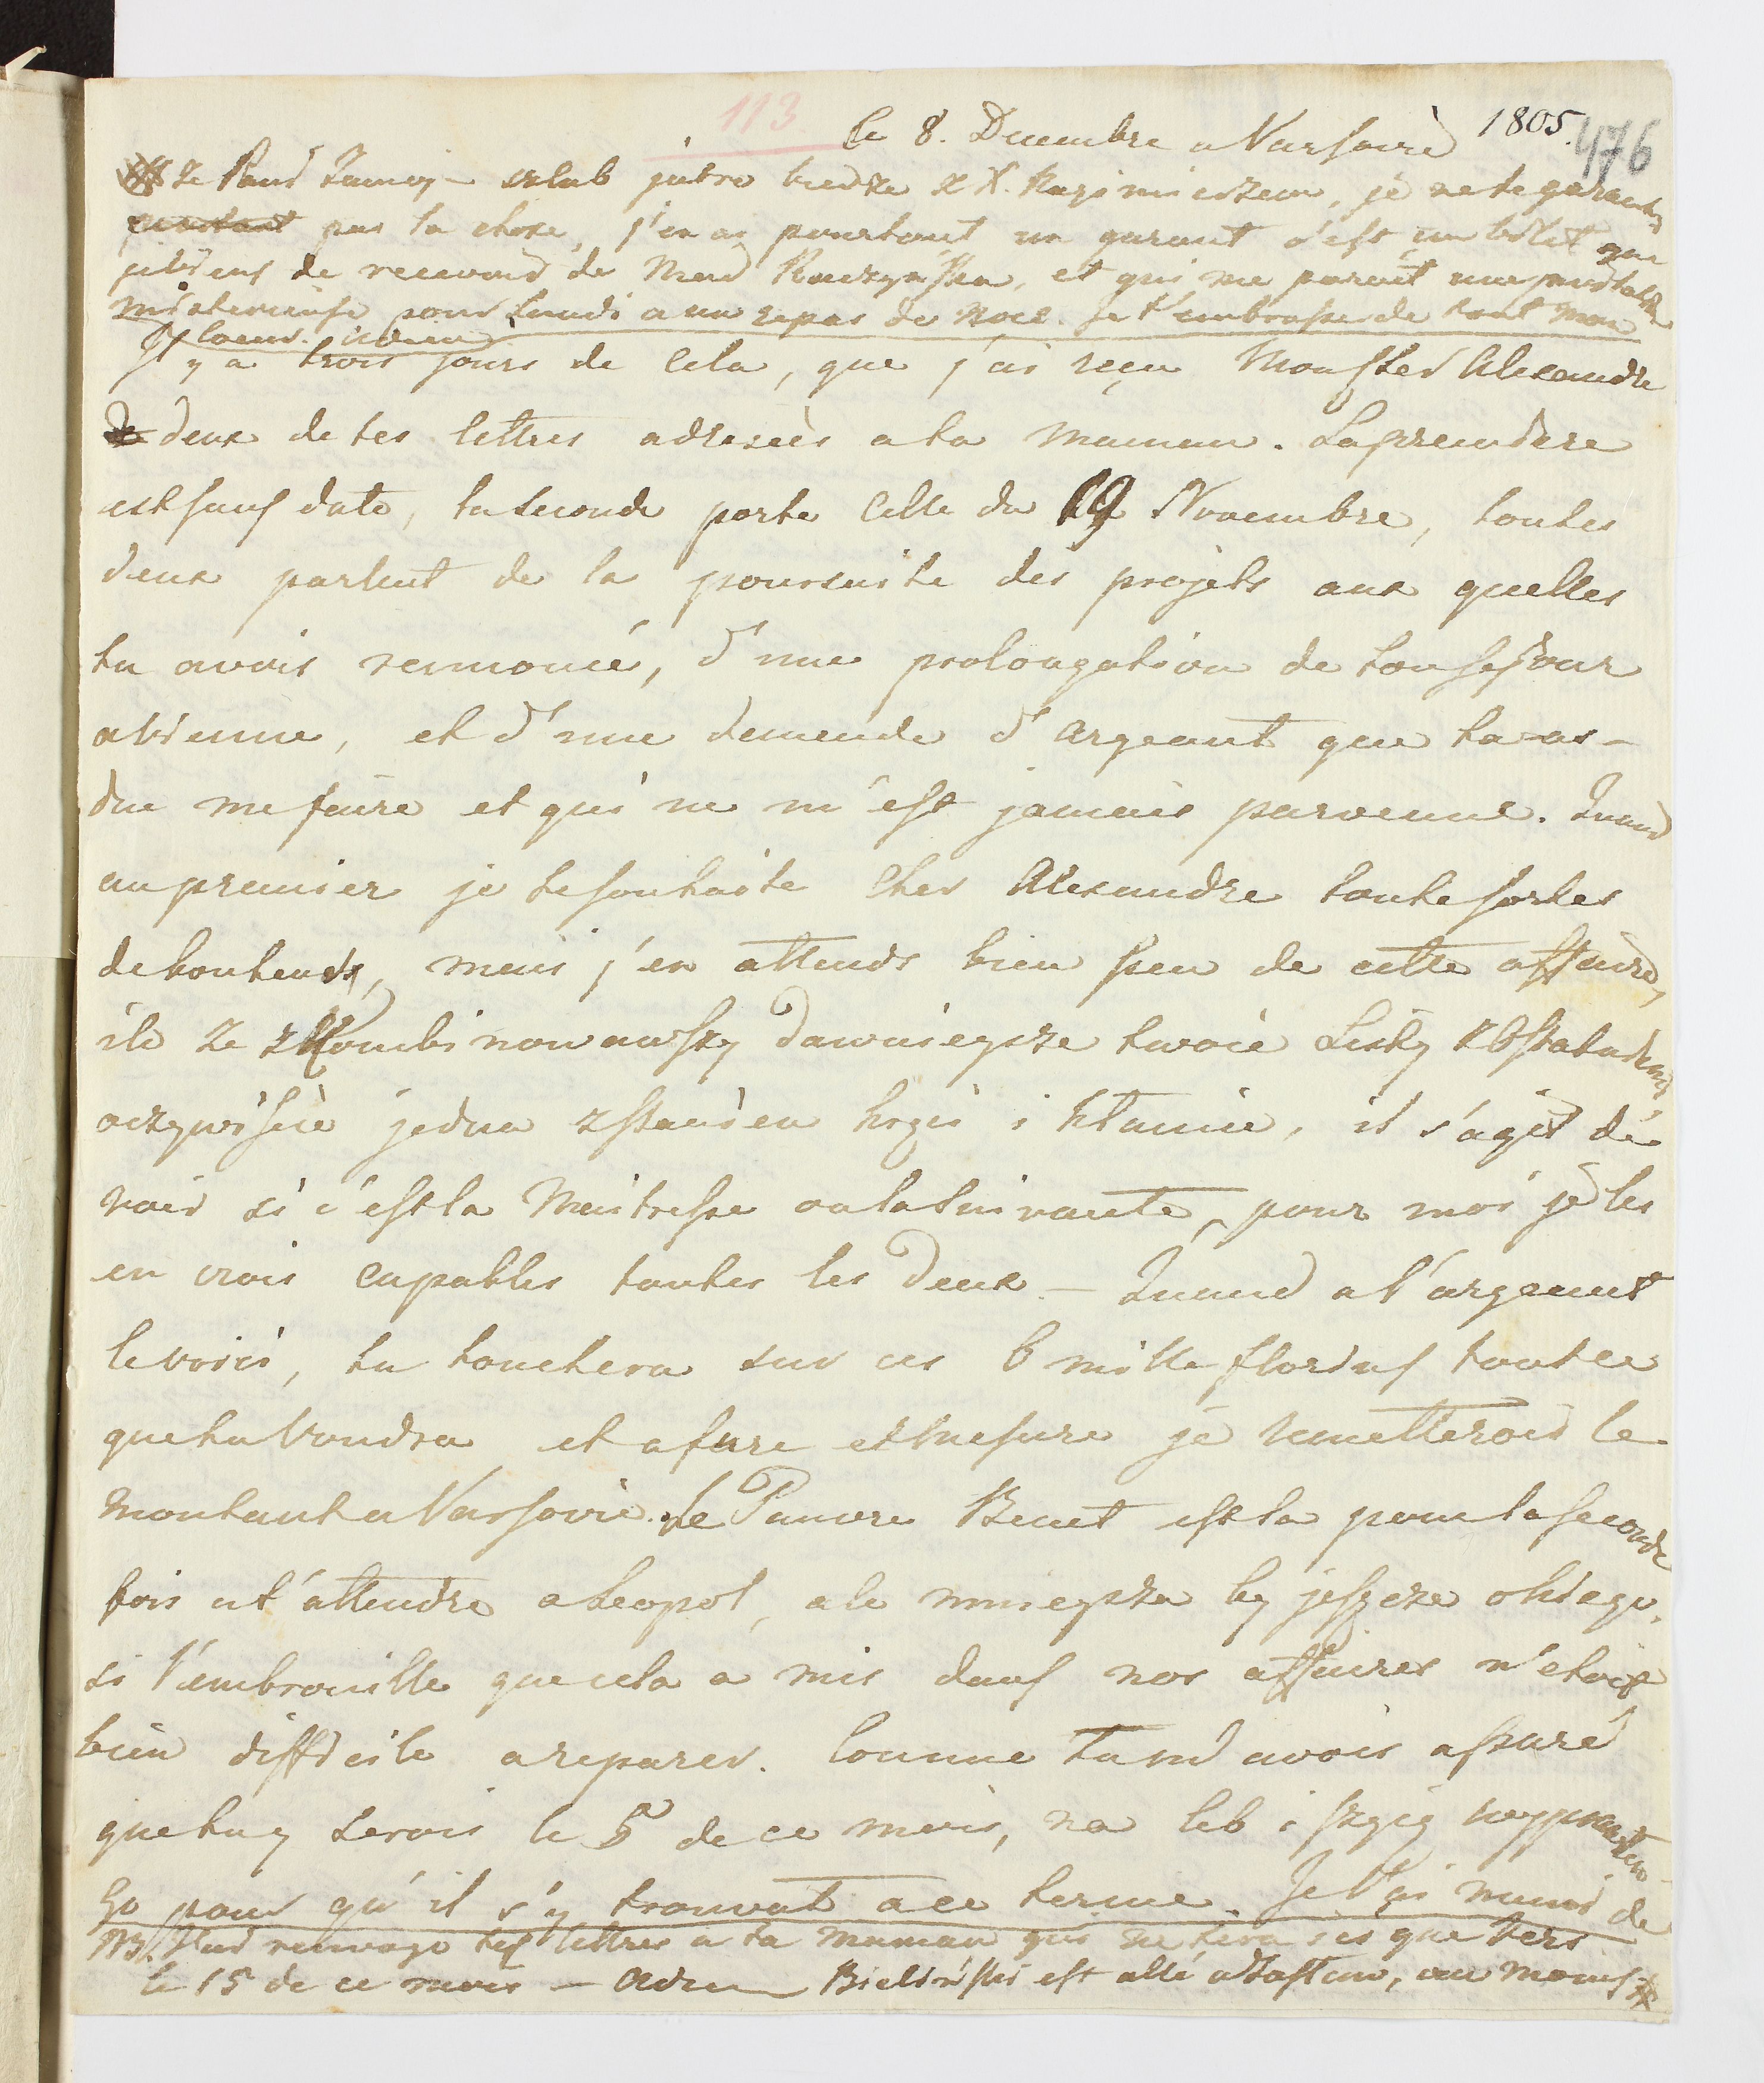 113
le 8. Decembre a Varsovie 1805.
476
ze Pani Zamoy – szlub jutro bierze z X. Kazimierzem, je ne te garantis
pourtant pas la chose, j'en ai pourtant un garant c'est un billet que
je viens de recevoir de Mad et qui me paroit une invitation
misterieuse pour Lundi a un repas de noce. Je t'embrasse de tout mon
Coeur. adieu
Il y a trois jours de Cela, que j'ai reçu Monsier Alexandre
deux de tes lettres adreseès a ta maman. La premiere
est sans date, la seconde porte Celle du 19 Novembre, toutes
deux parlent de la poursuite des projets aux quelles
tu avois rennoncé, d'une prolongation de ton sejour
a Vienne, et d'une demende d'argeant que tu as
due me faire et qui ne m'est jamais parvenue. Quand
au premier je te souhaite Cher Alexandre toute sortes
de bonheurs, mais j'en attends bien peu de cette affaire,
ile ze zkombinowawszy dawniejsze twoie Listy z Ostatniemi
oczywiscie jedna z Panien kręci i kłamie, il s'agit de
voir si c'est la Maitresse ou la Suivante, pour moi je les
en crois capables toutes les deux – Quand a l'argeant
le voici, tu touchera sur ces 6 mille florins tout ce
que tu voudra et a fure et mesure je remetterois le
montant a Varsovie. Le Pauvre Benet est la pour la seconde
fois a t'attendre a Leopol, ale mniejsza by jeszcze o niego,
si l'embrouille que cela a mis dans nos affaires n'etoit
bien difficile a reparer. Comme tu m'avois assuré
que tu y serois le 5 de ce mois, na łeb i szyię wyprawiłem
Go pour qu'il s'y trouvat a ce terme. Je l'ai muni de
NB. J'ai renvoyé tes lettres a ta maman qui ne sera ici que vers
le 15 de ce mois – Adieu Bielinski est allé au moins